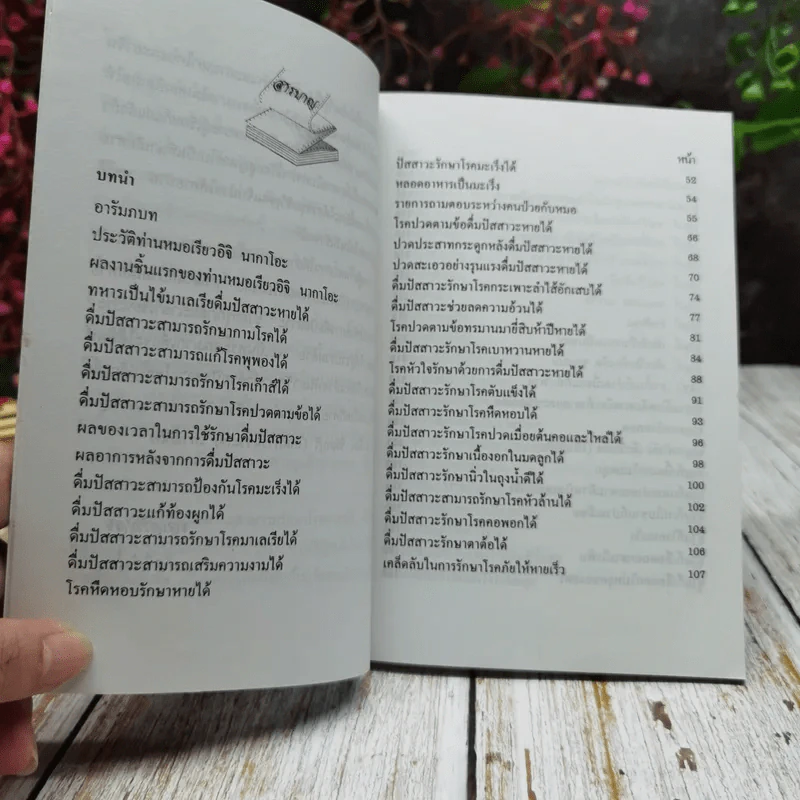 สารบาญ
บทนำ
อารัมภบท
ประวัติท่านหมอเรียวอิจิ นากาโอะ
ผลงานชิ้นแรกของท่านหมอเรียวอิจิ นากาโอะ
ทหารเป็นไข้มาเลเรียดื่มปัสสาวะหายได้
ดื่มปัสสาวะสามารถรักษากามโรคได้
ดื่มปัสสาวะสามารถแก้โรคพุพองได้
ดื่มปัสสาวะสามารถรักษาโรคเก๊าส์ได้
ดื่มปัสสาวะสามารถรักษาโรคปวดตามข้อได้
ผลของเวลาในการใช้รักษาดื่มปัสสาวะ
ผลอาการหลังจากการดื่มปัสสาวะ
ดื่มปัสสาวะสามารถป้องกันโรคมะเร็งได้
ดื่มปัสสาวะแก้ท้องผูกได้
ดื่มปัสสาวะสามารถรักษาโรคมาเลเรียได้
ดื่มปัสสาวะสามารถเสริมความงามได้
โรคหืดหอบรักษาหายได้
หน้า
ปัสสาวะรักษาโรคมะเร็งได้ 52
หลอดอาหารเป็นมะเร็ง 54
รายการถามตอบระหว่างคนป่วยกับหมอ 55
โรคปวดตามข้อดื่มปัสสาวะหายได้ 66
ปวดประสาทกระดูกหลังดื่มปัสสาวะหายได้ 68
ปวดสะเอวอย่างรุนแรงดื่มปัสสาวะหายได้ 70
ดื่มปัสสาวะรักษาโรคกระเพาะลำไส้อักเสบได้ 74
ดื่มปัสสาวะช่วยลดความอ้วนได้ 77
โรคปวดตามข้อทรมานมายี่สิบห้าปีหายได้ 81
ดื่มปัสสาวะรักษาโรคเบาหวานหายได้ 84
โรคหัวใจรักษาด้วยการดื่มปัสสาวะหายได้ 88
ดื่มปัสสาวะรักษาโรคตับแข็งได้ 91
ดื่มปัสสาวะรักษาโรคหืดหอบได้ 93
ดื่มปัสสาวะรักษาโรคปวดเมื่อยต้นคอและไหล่ได้ 96
ดื่มปัสสาวะรักษาเนื้องอกในมดลูกได้ 98
ดื่มปัสสาวะรักษานิ่วในถุงน้ำดีได้ 100
ดื่มปัสสาวะสามารถรักษาโรคหัวล้านได้ 102
ดื่มปัสสาวะรักษาโรคคอพอกได้ 104
ดื่มปัสสาวะรักษาตาต้อได้ 106
เคล็ดลับในการรักษาโรคภัยให้หายเร็ว 107